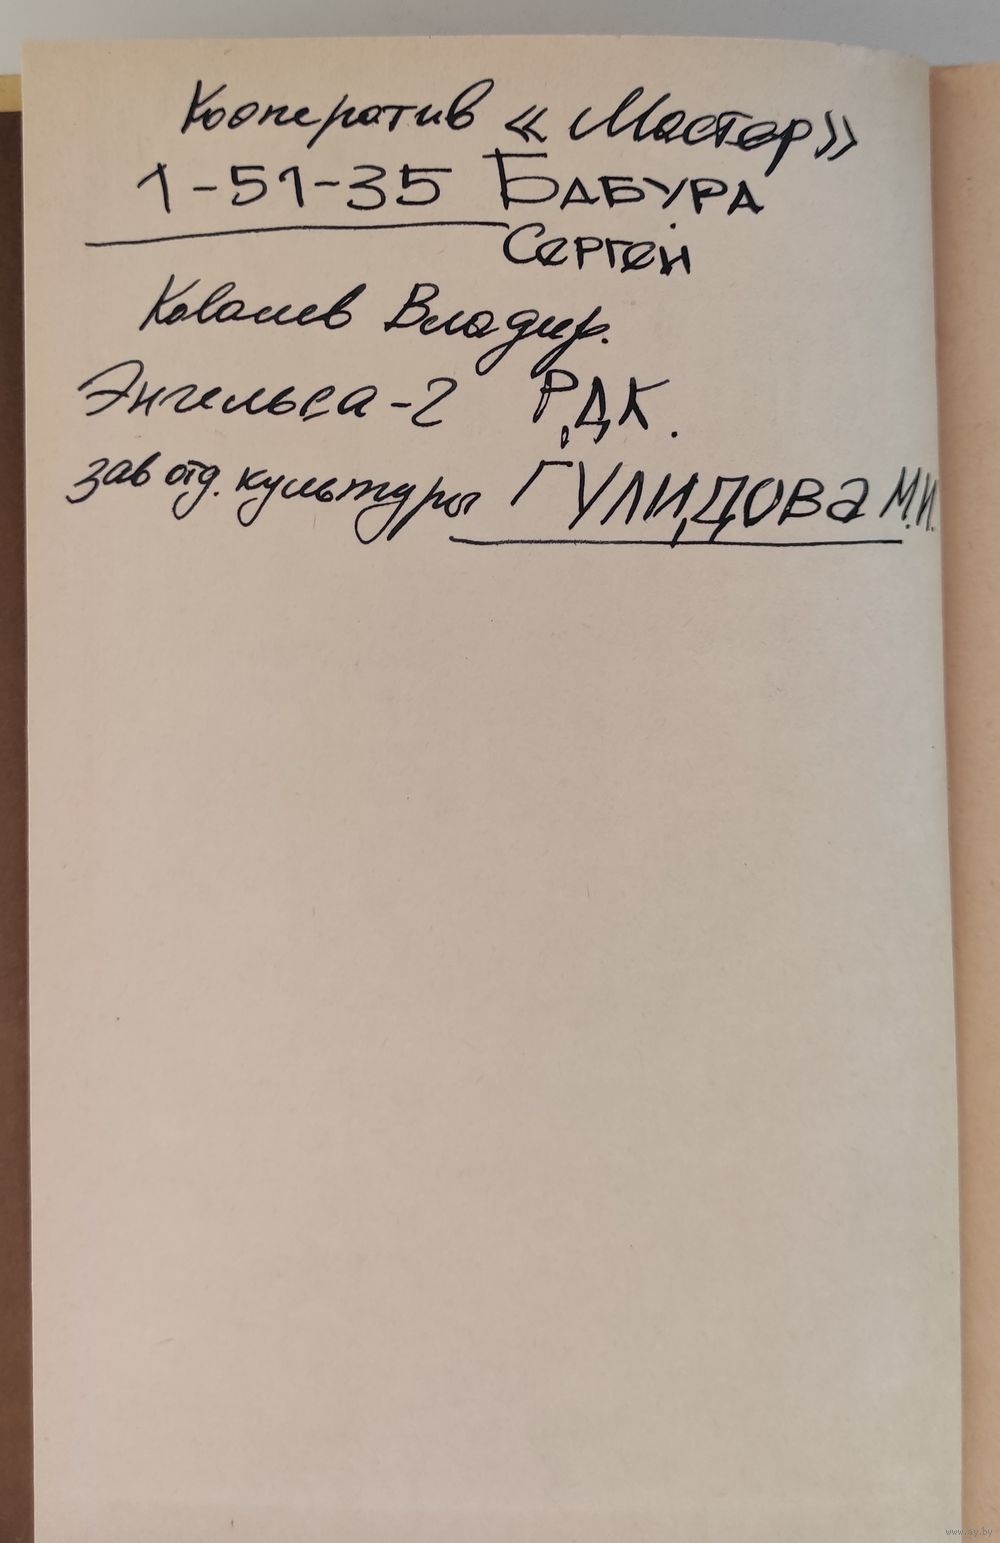 Кооператив «Мастер»
1-51-35 Бабура
Сергей
Ковалев Владир.
Энгельса-2 Р,Д,К.
зав отд. культуры ГУЛИДОВА М.И.
www.ay.by